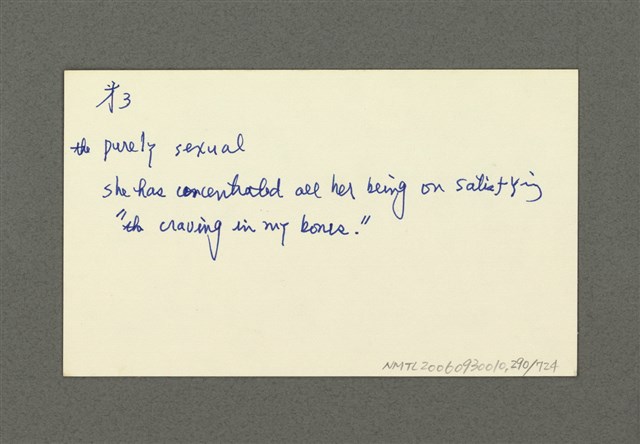 才3
the purely sexual
she has concentrated all her being on satisfying
"the craving in my bones."
NMTL20060930010,290/724